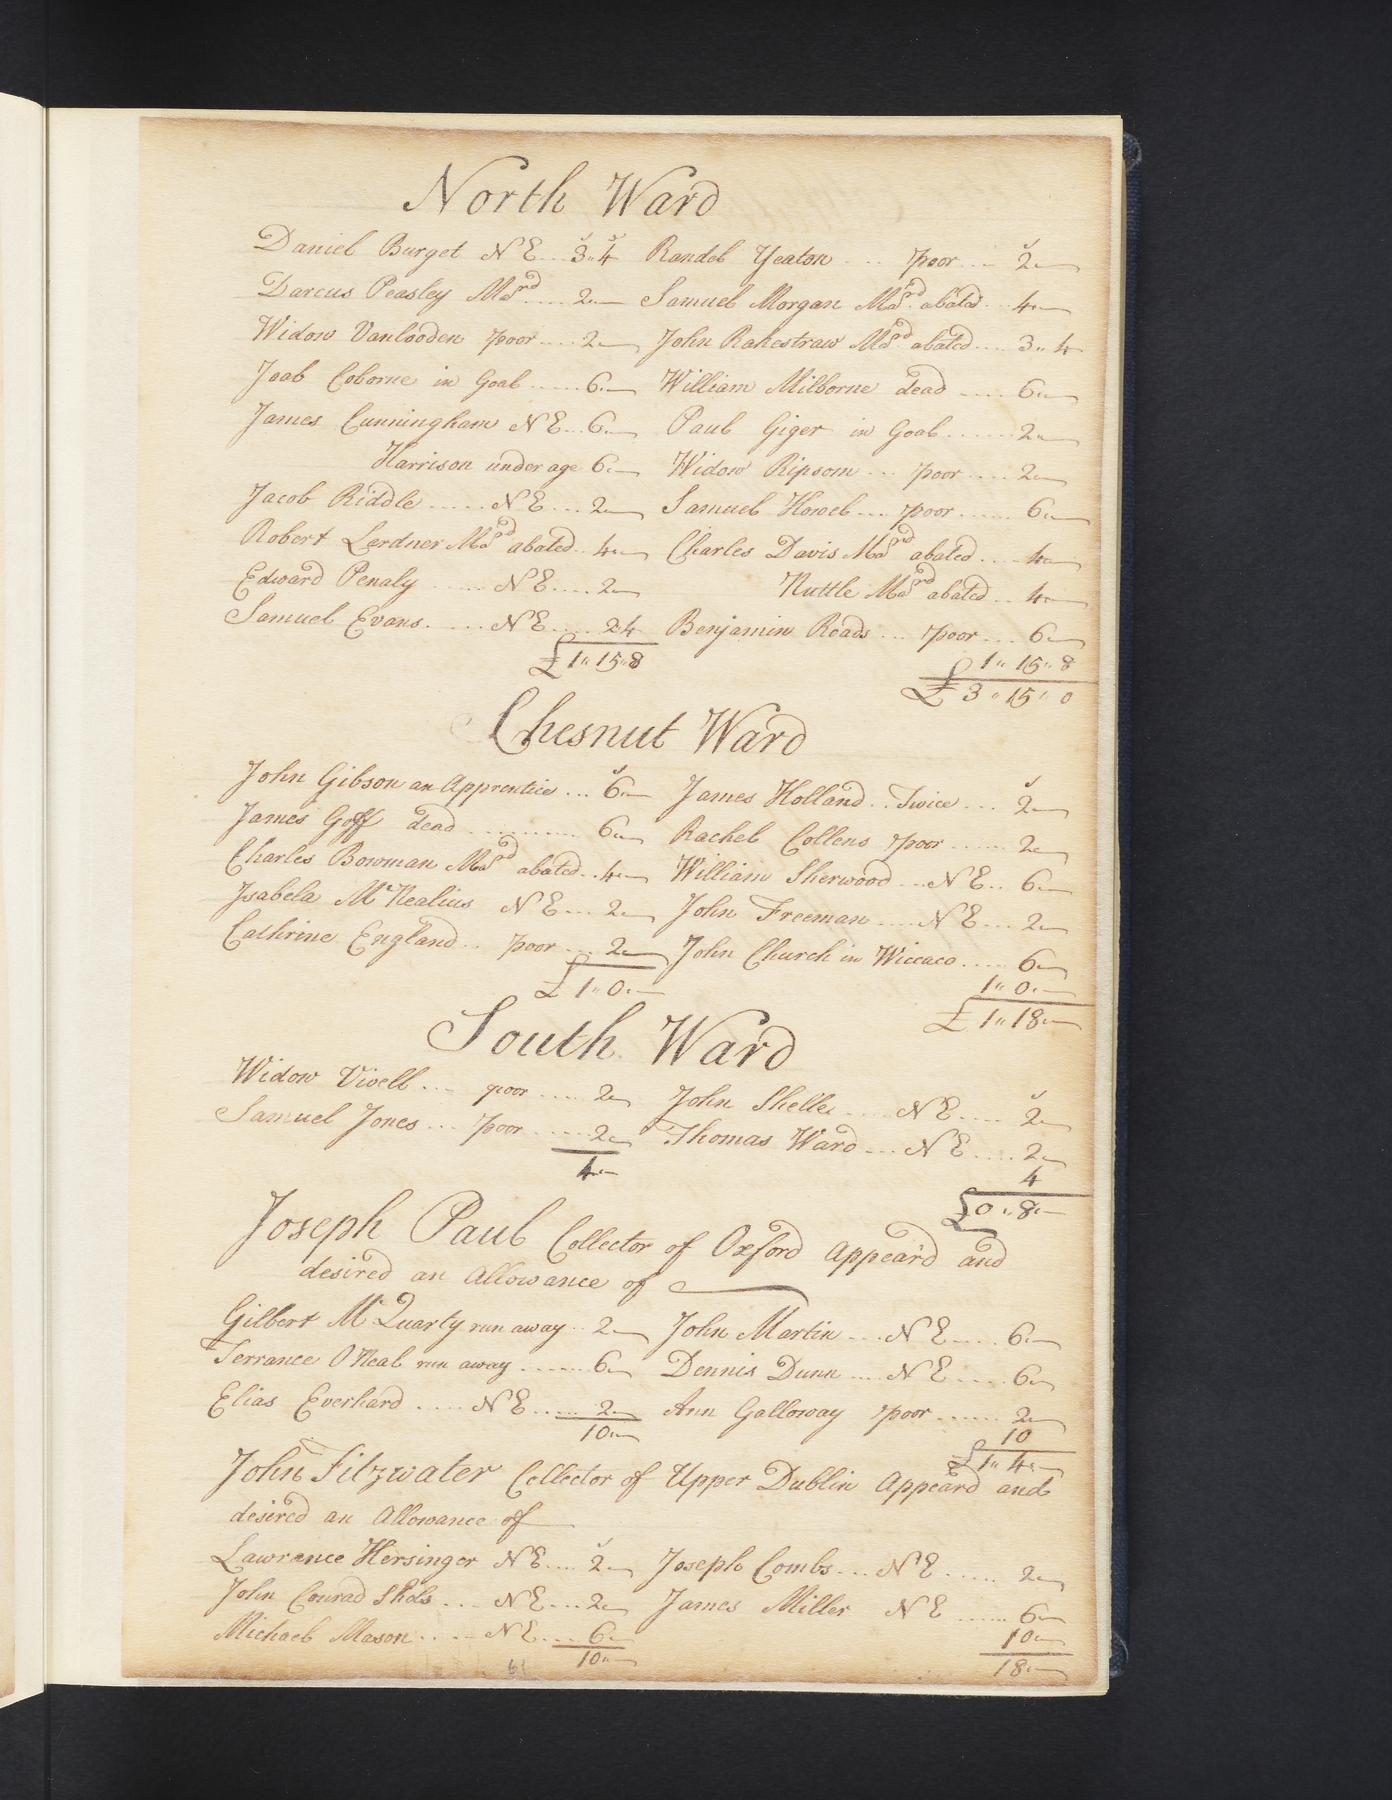 North Ward
Daniel Burget NE ... 3"4 Randel Yeaton .... poor ... 2"—
Darcus Peasley Ma^rd ..... 2"— Samuel Morgan Ma^rd abated .. 4"—
Widow Vanlooden poor .... 2"— John Rakestraw Ma^rd abated .... 3"4
Joab Coborne in Goal ...... 6"— William Milborne dead ..... 6"—
James Cunningham NE... 6"— Paul Giger in Goal ....... 2"—
Harrison under age 6"— Widow Ripsom ... poor .... 2"—
Jacob Riddle ...... NE ... 2"— Samuel Howel ... poor ...... 6"—
Robert Lerdner Ma^rd abated .. 4"— Charles Davis Ma^rd abated .... 4"—
Edward Penaly ..... NE .... 2"— Nuttle Ma^rd abated ... 4"—
Samuel Evans ..... NE .... 2"4 Benjamin Roads ... poor .... 6"—
£1"15"8 1"15"8
£3"15"0
Chesnut Ward
John Gibson an Apprentice ... 6"— James Holland .. Twice ... 2"—
James Goff dead ............ 6"— Rachel Collens poor ...... 2"—
Charles Bowman Ma^rd abated .. 4"— William Sherwood ... NE .. 6"—
Isabela McNealius NE ... 2"— John Freeman .... NE ... 2"—
Cathrine England .. poor ... 2"— John Church in Wiccaco ..... 6"—
£1"0"— 1"0"—
£1"18"—
South Ward
Widow Vivell ... poor ..... 2"— John Shelle .... NE .... 2"—
Samuel Jones ... poor ..... 2"— Thomas Ward ... NE .... 2"—
4"— 4
£0"8"—
Joseph Paul Collector of Oxford Appear'd and
desired an Allowance of
Gilbert McQuarly run away .. 2"— John Martin ... NE .... 6"—
Terrance ONeal run away ....... 6"— Dennis Dunn ... NE .... 6"—
Elias Everhard .... NE ..... 2"— Ann Galloway poor ...... 2"—
10"— 10
£1"4"—
John Fitzwater Collector of Upper Dublin Appeard and
desired an Allowance of
Lawrance Hersinger NE ... 2"— Joseph Combs ... NE ...... 2"—
John Conrad NE ... 2"— James Miller NE ...... 6"—
Michael Mason .... NE .... 6"— 10"—
10"— 18"—